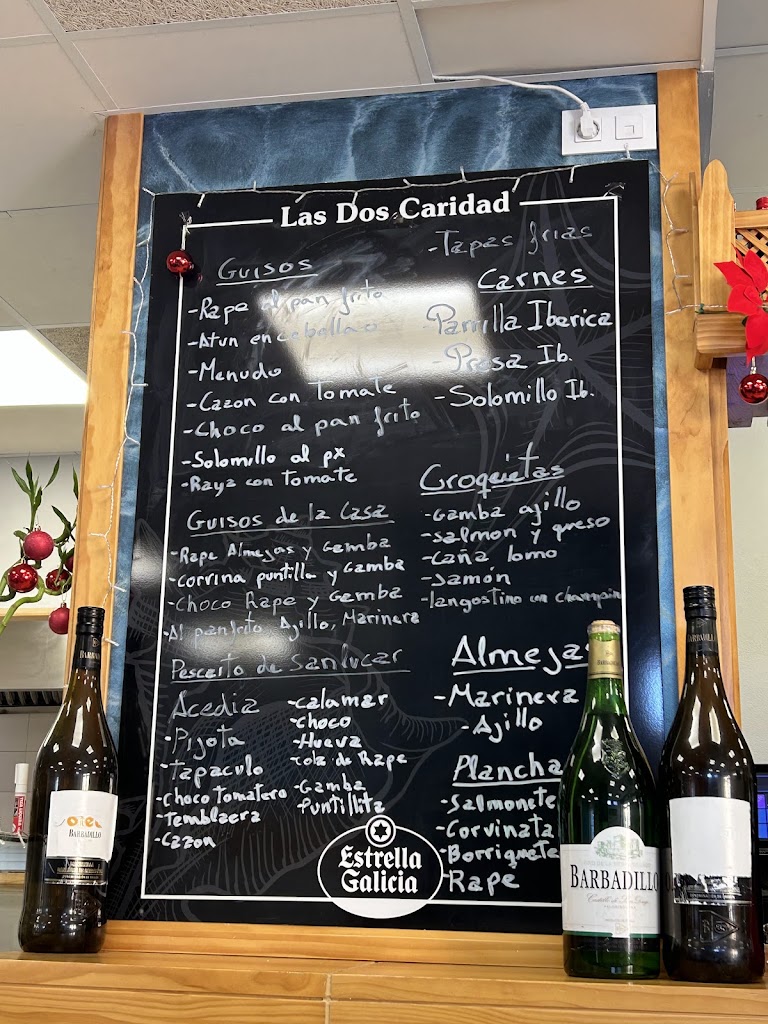 Las Dos Caridad
Guisos
-Rape al pan frito
-Atun encebollao
-Menudo
-Cazon con Tomate
-Choco al pan frito
-Solomillo al px
-Raya con Tomate
Guisos de la Casa
-Rape Almejas y Gamba
-corrina puntilla y Gamba
-Choco Rape y Gamba
-Al pan frito Ajillo, Marinera
Pescaito de Sanlucar
Acedia
-Pijota
-Tapaculo
-Choco Tomatero
-Temblaera
-Cazon
-calamar
-choco
-Hueva
-cola de Rape
-Gamba
Puntillita
-Tapas frias
Carnes
-Parrilla Iberica
-Presa Ib.
-Solomillo Ib.
Croquetas
-Gamba ajillo
-salmon y queso
-caña lomo
-Jamón
-langostino con champin
Almejas
-Marinera
-Ajillo
Plancha
-Salmonete
-Corvinata
-Borriquete
-Rape
Estrella
Galicia
BARBADILLO
BARBADILLO